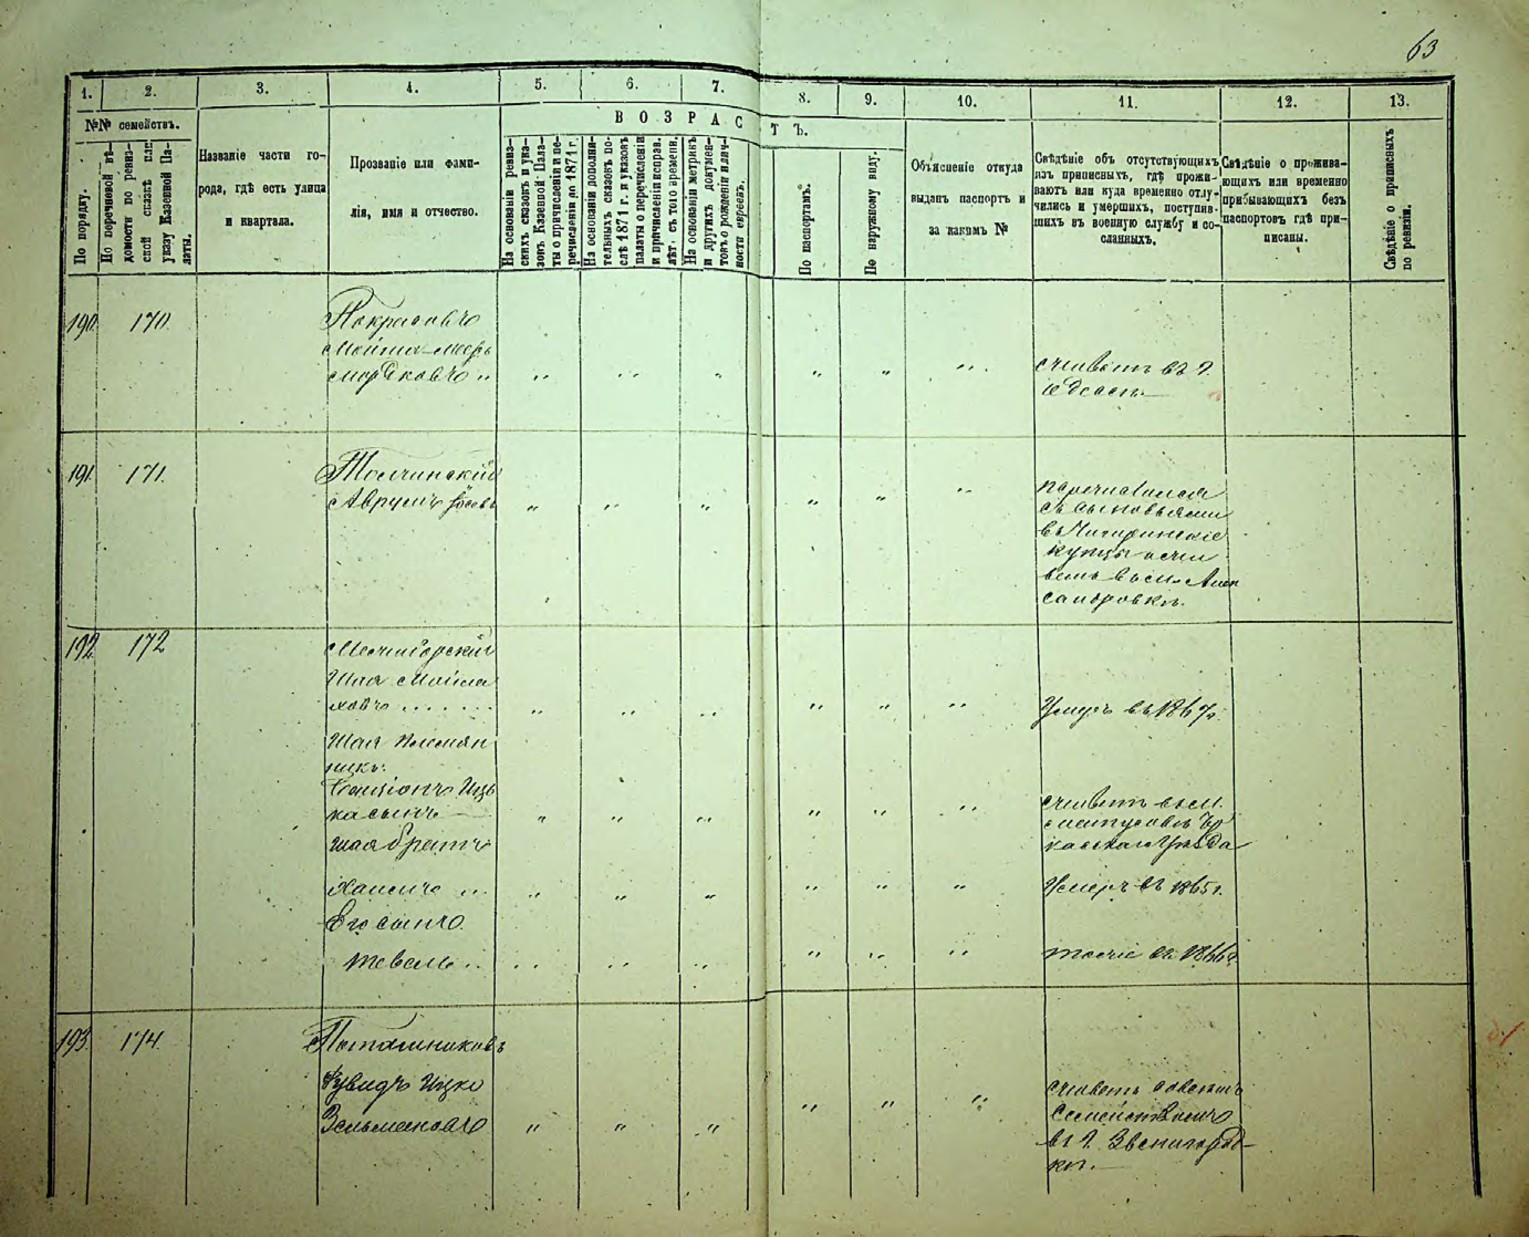 63
1. 2. 3. 4. 5. 6. 7. 8. 9. 10. 11. 12. 13.
№№ семействъ.
По порядку.
По перечневой вѣдомости по ревизской сказкѣ или указу Казенной Палаты.
Названіе части города, гдѣ есть улица и квартала.
Прозваніе или фамилія, имя и отчество.
ВОЗРАСТЪ.
На основаніи ревизскихъ сказокъ и указовъ Казенной Палаты о причисленіи и перечисленіи до 1871 г.
На основаніи дополнительныхъ сказокъ послѣ 1871 г. и указовъ палаты о перечисленіи и причисленіи исправ. лѣт. съ того времени.
На основаніи метрикъ и другихъ документовъ о рожденіи и личности евреевъ.
По паспортамъ.
По наружному виду.
Объясненіе откуда выданъ паспортъ и за какимъ №
Свѣдѣніе объ отсутствующихъ изъ приписныхъ, гдѣ проживаютъ или куда временно отлучились и умершихъ, поступившихъ въ военную службу и сосланныхъ.
Свѣдѣніе о проживающихъ или временно прибывающихъ безъ паспортовъ гдѣ приписаны.
Свѣдѣніе о приписныхъ по ревизіи.
190. 170.
Мордковъ " " " " " " "
живетъ въ г.
Одессѣ.
191. 171.
Толчинскій
Аврумъ " " " " " "
перечислился
съ сыновьями
въ Чигиринскіе
купцы
сандровкѣ.
192 172
Межигорскій
Шая Мошко
ховъ " " " " " "
Умеръ въ 1867г.
Шая племян
никъ
Бенціонъ Иць
ка сынъ " " " " " "
живетъ въ м.
уѣзда
Шая братъ
Хаимъ " " " " " "
Умеръ въ 1865г.
Его сынъ
Тевель " " " " " "
тоже въ 1866г.
193. 174.
Поташниковъ
Ицко
Зельмановъ " " " " " "
живетъ
семействомъ
въ г. Звенигород-
кѣ.